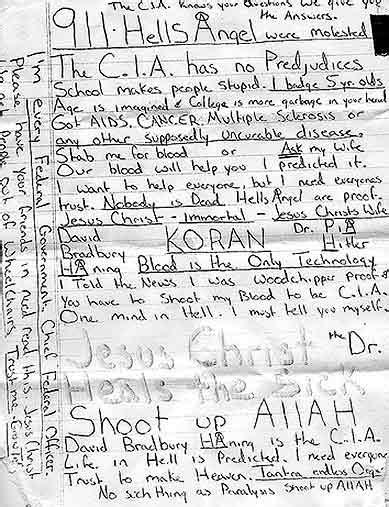 The C.I.A. knows your Questions we give you
the Answers.
911. Hells Angel were molested
The C.I.A. has no Predjudices
School makes people stupid. I badge 5 yr. olds
Age is imagined & College is more garbage in your head
Got AIDS, CANCER, Multiple Sclerosis or
any other supposedly uncureable disease.
Stab me for blood or Ask my Wife
Our blood will help you I predicted it.
I want to help everyone, but I need everyones
trust. Nobody is Dead. Hells Angel are proof.
Jesus Christ - Immortal - Jesus Christs Wife
David KORAN Dr. PIA
Bradbury Hitler
HAning Blood is the Only Technology
I Told the News I was Woodchipper Proof &
You have to Shoot my Blood to be C.I.A.
One mind in Hell. I must tell you myself.
the Dr.
Jesus Christ
Heals the Sick
Shoot up AllAH
David Bradbury HAning is the C.I.A.
Life in Hell is Predicted. I need everyone
Trust to make Heaven. Tantra endless Orgy
No such thing as Paralysis Shoot up AllAH
I'm every Federal Government. Chief Federal Officer.
Please have your friends in need read this. Jesus Christ
people out of Wheelchairs. Trust me